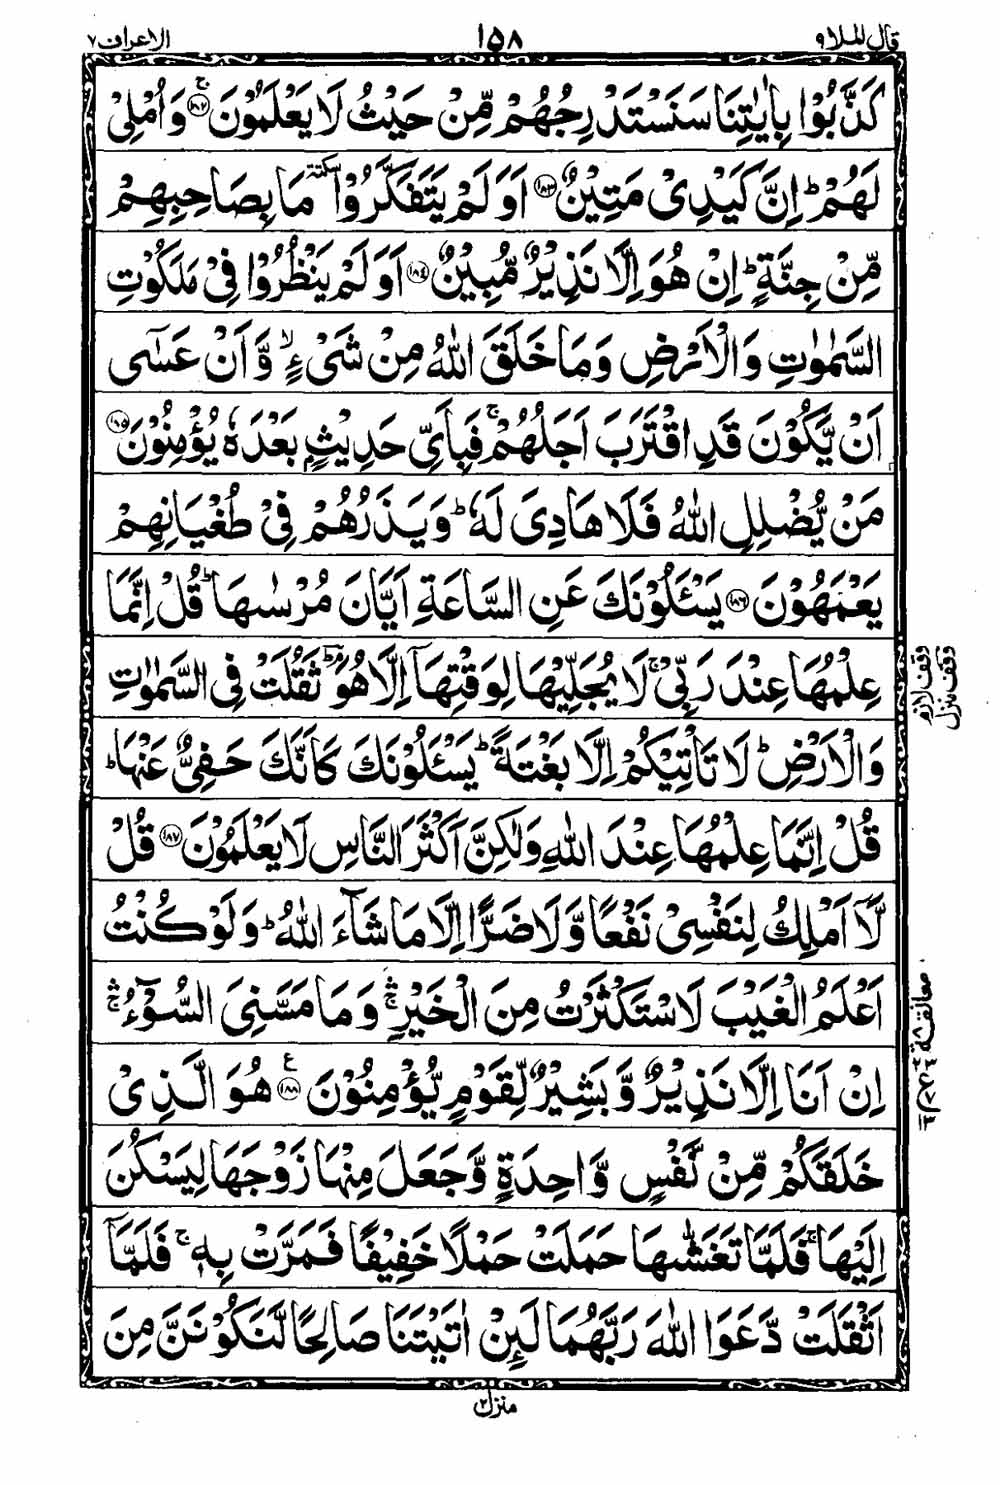 قال الملا ٩ ١٥٨ الاعراف ٧
كَذَّبُوْا بِاٰيٰتِنَا سَنَسْتَدْرِجُهُمْ مِّنْ حَيْثُ لَا يَعْلَمُوْنَ ۚ‏﴿۱۸۲﴾ وَاُمْلِىْ
لَهُمْ ؕ اِنَّ كَيْدِىْ مَتِيْنٌ ﴿۱۸۳﴾ اَوَلَمْ يَتَفَكَّرُوْا سكتة مَا بِصَاحِبِهِمْ
مِّنْ جِنَّةٍ ؕ اِنْ هُوَ اِلَّا نَذِيْرٌ مُّبِيْنٌ ﴿۱۸٤﴾ اَوَلَمْ يَنْظُرُوْا فِىْ مَلَكُوْتِ
السَّمٰوٰتِ وَالْاَرْضِ وَمَا خَلَقَ اللّٰهُ مِنْ شَىْءٍ ۙ وَّاَنْ عَسٰٓى
اَنْ يَّكُوْنَ قَدِ اقْتَرَبَ اَجَلُهُمْ ۚ فَبِاَىِّ حَدِيْثٍۭ بَعْدَهٗ يُؤْمِنُوْنَ ﴿۱۸۵﴾
مَنْ يُّضْلِلِ اللّٰهُ فَلَا هَادِىَ لَهٗ ؕ وَيَذَرُهُمْ فِىْ طُغْيَانِهِمْ
يَعْمَهُوْنَ ﴿۱۸۶﴾ يَسْئَلُوْنَكَ عَنِ السَّاعَةِ اَيَّانَ مُرْسٰىهَا ؕ قُلْ اِنَّمَا
عِلْمُهَا عِنْدَ رَبِّىْ ۚ لَا يُجَلِّيْهَا لِوَقْتِهَاۤ اِلَّا هُوَ ؕ ثَقُلَتْ فِى السَّمٰوٰتِ
وَالْاَرْضِ ؕ لَا تَاْتِيْكُمْ اِلَّا بَغْتَةً ؕ يَسْئَلُوْنَكَ كَاَنَّكَ حَفِىٌّ عَنْهَا ؕ
قُلْ اِنَّمَا عِلْمُهَا عِنْدَ اللّٰهِ وَلٰكِنَّ اَكْثَرَ النَّاسِ لَا يَعْلَمُوْنَ ﴿۱۸۷﴾ قُلْ
لَّاۤ اَمْلِكُ لِنَفْسِىْ نَفْعًا وَّلَا ضَرًّا اِلَّا مَا شَآءَ اللّٰهُ ؕ وَلَوْ كُنْتُ
اَعْلَمُ الْغَيْبَ لَاسْتَكْثَرْتُ مِنَ الْخَيْرِ ۛۚ وَمَا مَسَّنِىَ السُّوْٓءُ ۛۚ
اِنْ اَنَا اِلَّا نَذِيْرٌ وَّبَشِيْرٌ لِّقَوْمٍ يُّؤْمِنُوْنَ ع ﴿۱۸۸﴾ هُوَ الَّذِىْ
خَلَقَكُمْ مِّنْ نَّفْسٍ وَّاحِدَةٍ وَّجَعَلَ مِنْهَا زَوْجَهَا لِيَسْكُنَ
اِلَيْهَا ۚ فَلَمَّا تَغَشّٰىهَا حَمَلَتْ حَمْلًا خَفِيْفًا فَمَرَّتْ بِهٖ ۚ فَلَمَّاۤ
اَثْقَلَتْ دَّعَوَا اللّٰهَ رَبَّهُمَا لَئِنْ اٰتَيْتَنَا صَالِحًا لَّنَكُوْنَنَّ مِنَ
وقف لازم
وقف منزل
معانقة ٨
منزل ٢